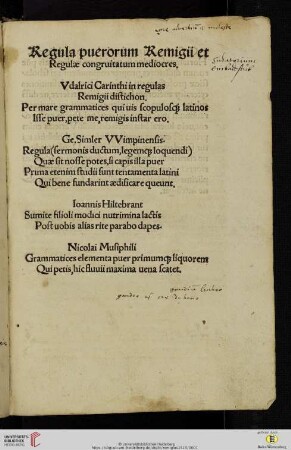 Regula puerorum Remigii et
Regulæ congruitatum mediocres,
Vdalrici Carinthi in regulas
Remigii distichon,
Per mare grammatices qui uis scopulosq; latinos
Isse puer, pete me, remigis instar ero.
Ge. Simler VVimpinensis.
Regula (sermonis ductum, legemq; loquendi)
Quæ sit nosse potes, si capis illa puer
Prima etenim studii sunt tentamenta latini
Qui bene fundarint ædificare queunt.
Ioannis Hiltebrant
Sumite filioli modici nutrimina lactis
Post uobis alias rite parabo dapes.
Nicolai Musiphili
Grammatices elementa puer primumq; liquorem
Qui petis, hic fluuii maxima uena scatet.
UNIVERSITÄTS-
BIBLIOTHEK
HEIDELBERG
© Universitätsbibliothek Heidelberg
gefördert durch
Baden-Württemberg